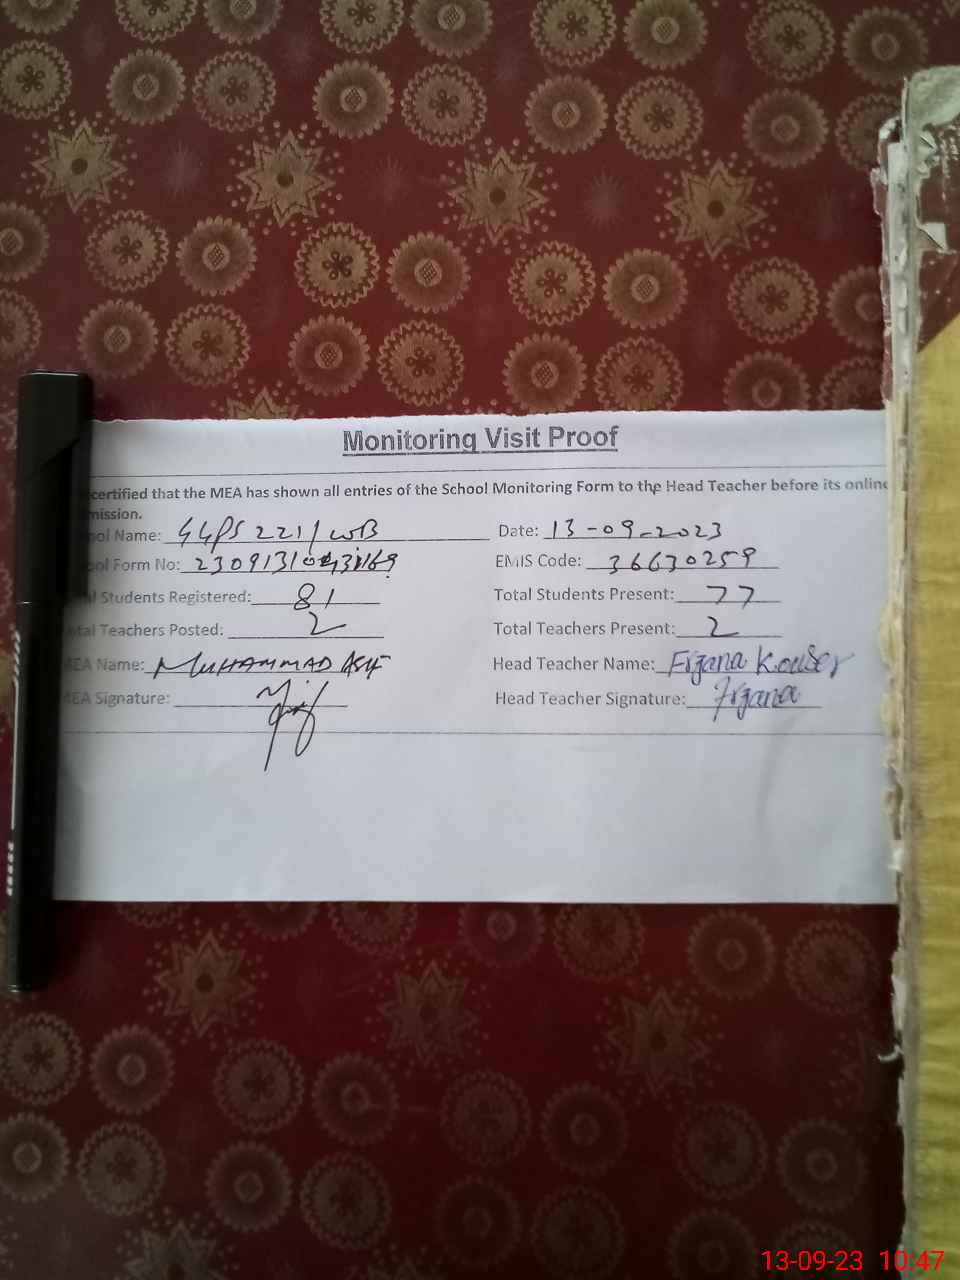 Monitoring Visit Proof
certified that the MEA has shown all entries of the School Monitoring Form to the Head Teacher before its online
mission.
ool Name: GGPS 221/WB Date: 13-09-2023
ool Form No: EMIS Code: 36630259
al Students Registered: 81 Total Students Present: 77
tal Teachers Posted: 2 Total Teachers Present: 2
EA Name: MUHAMMAD ASIF Head Teacher Name: Frzana Kouser
EA Signature: Head Teacher Signature: Frzana
13-09-23 10:47